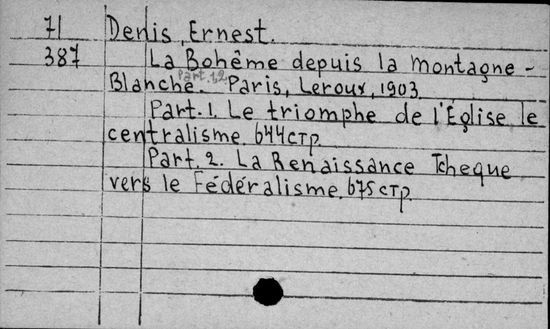 71 Denis, Ernest.
387 La Bohême depuis la montagne-
Blanche. Part. 1,2 Paris, Leroux, 1903.
Part. 1. Le triomphe de l'Eglise le
centralisme. 644 стр.
Part. 2. La Renaissance Tcheque
vers le Fédéralisme. 675 стр.